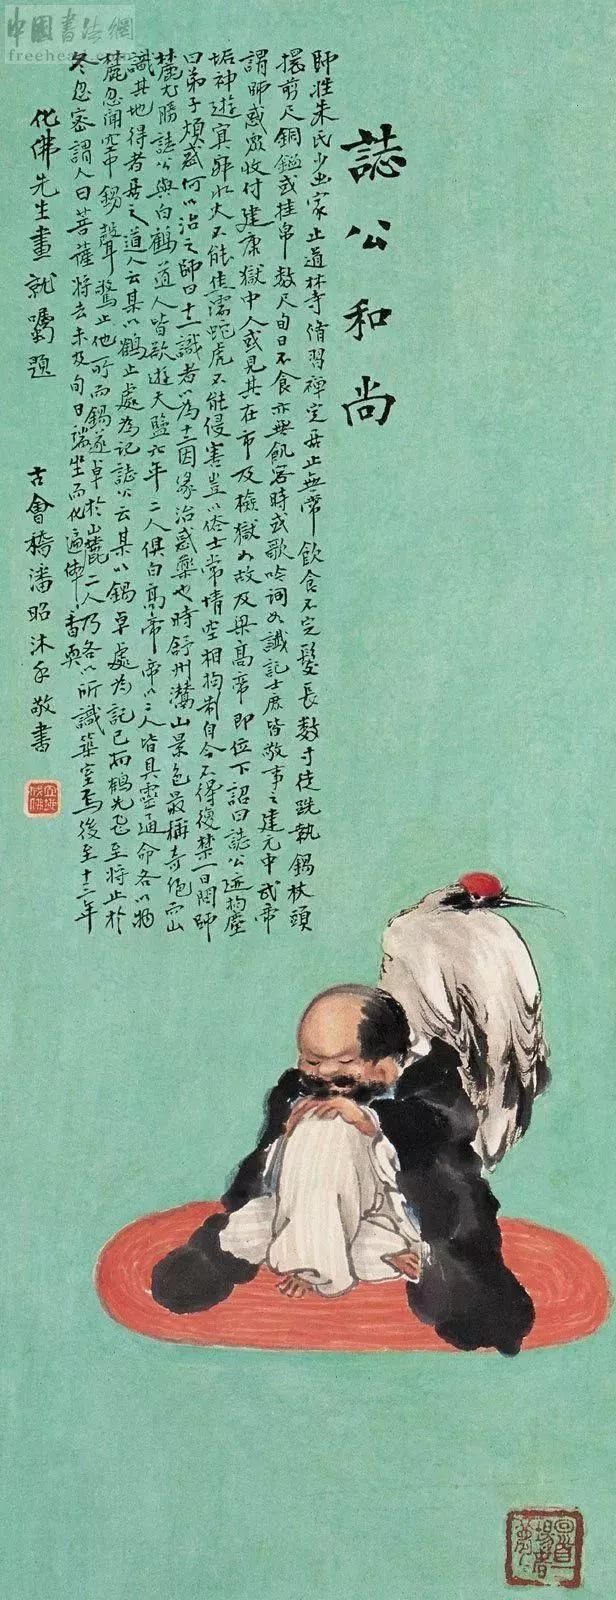 中國書法網
freehead.com
誌公和尚
師姓朱氏少出家止道林寺脩習禪定居止無常飲食不定髮長數寸徒跣執錫杖頭
擐剪尺銅鑑或挂帛數尺旬日不食亦無飢容時或歌吟詞如讖記士庶皆敬事之建元中武帝
謂師惑眾收付建康獄中人或見其在市及檢獄如故及梁高帝即位下詔曰誌公迹拘塵
垢神遊冥寂水火不能焦濡蛇虎不能侵害豈以俗士常情空相拘制自今不得復禁一日問師
曰弟子煩惑何以治之師曰十二識者以為十二因緣治惑藥也時舒州灊山景色最稱奇絕而山
麓尤勝誌公與白鶴道人皆欲遊天鑒六年二人俱白高帝帝以二人皆具靈通命各以物
識其地得者居之道人云某以鶴止處為記誌公云某以錫卓處為記已而鶴先飛至將止於
麓忽聞空中錫聲驚止他所而錫遂卓於山麓二人乃各以所識築室焉後至十三年
冬忽密謂人曰菩薩將去未及旬日端坐而化遍體香耎
化佛先生畫就囑題 古會稽潘昭沐手敬書